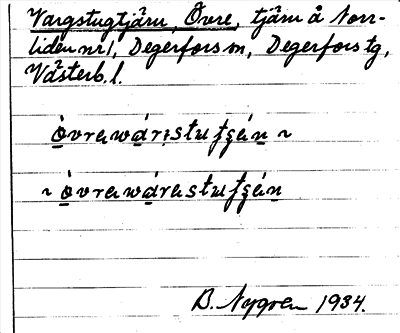 Vargstugtjärn, Övre, tjärn å Norr-
liden nr 1, Degerfors sn, Degerfors tg,
Västerb. l.
òvrawáristutʃȿán ~
~ òvrawárastutʃȿán
B. Nygren 1934.